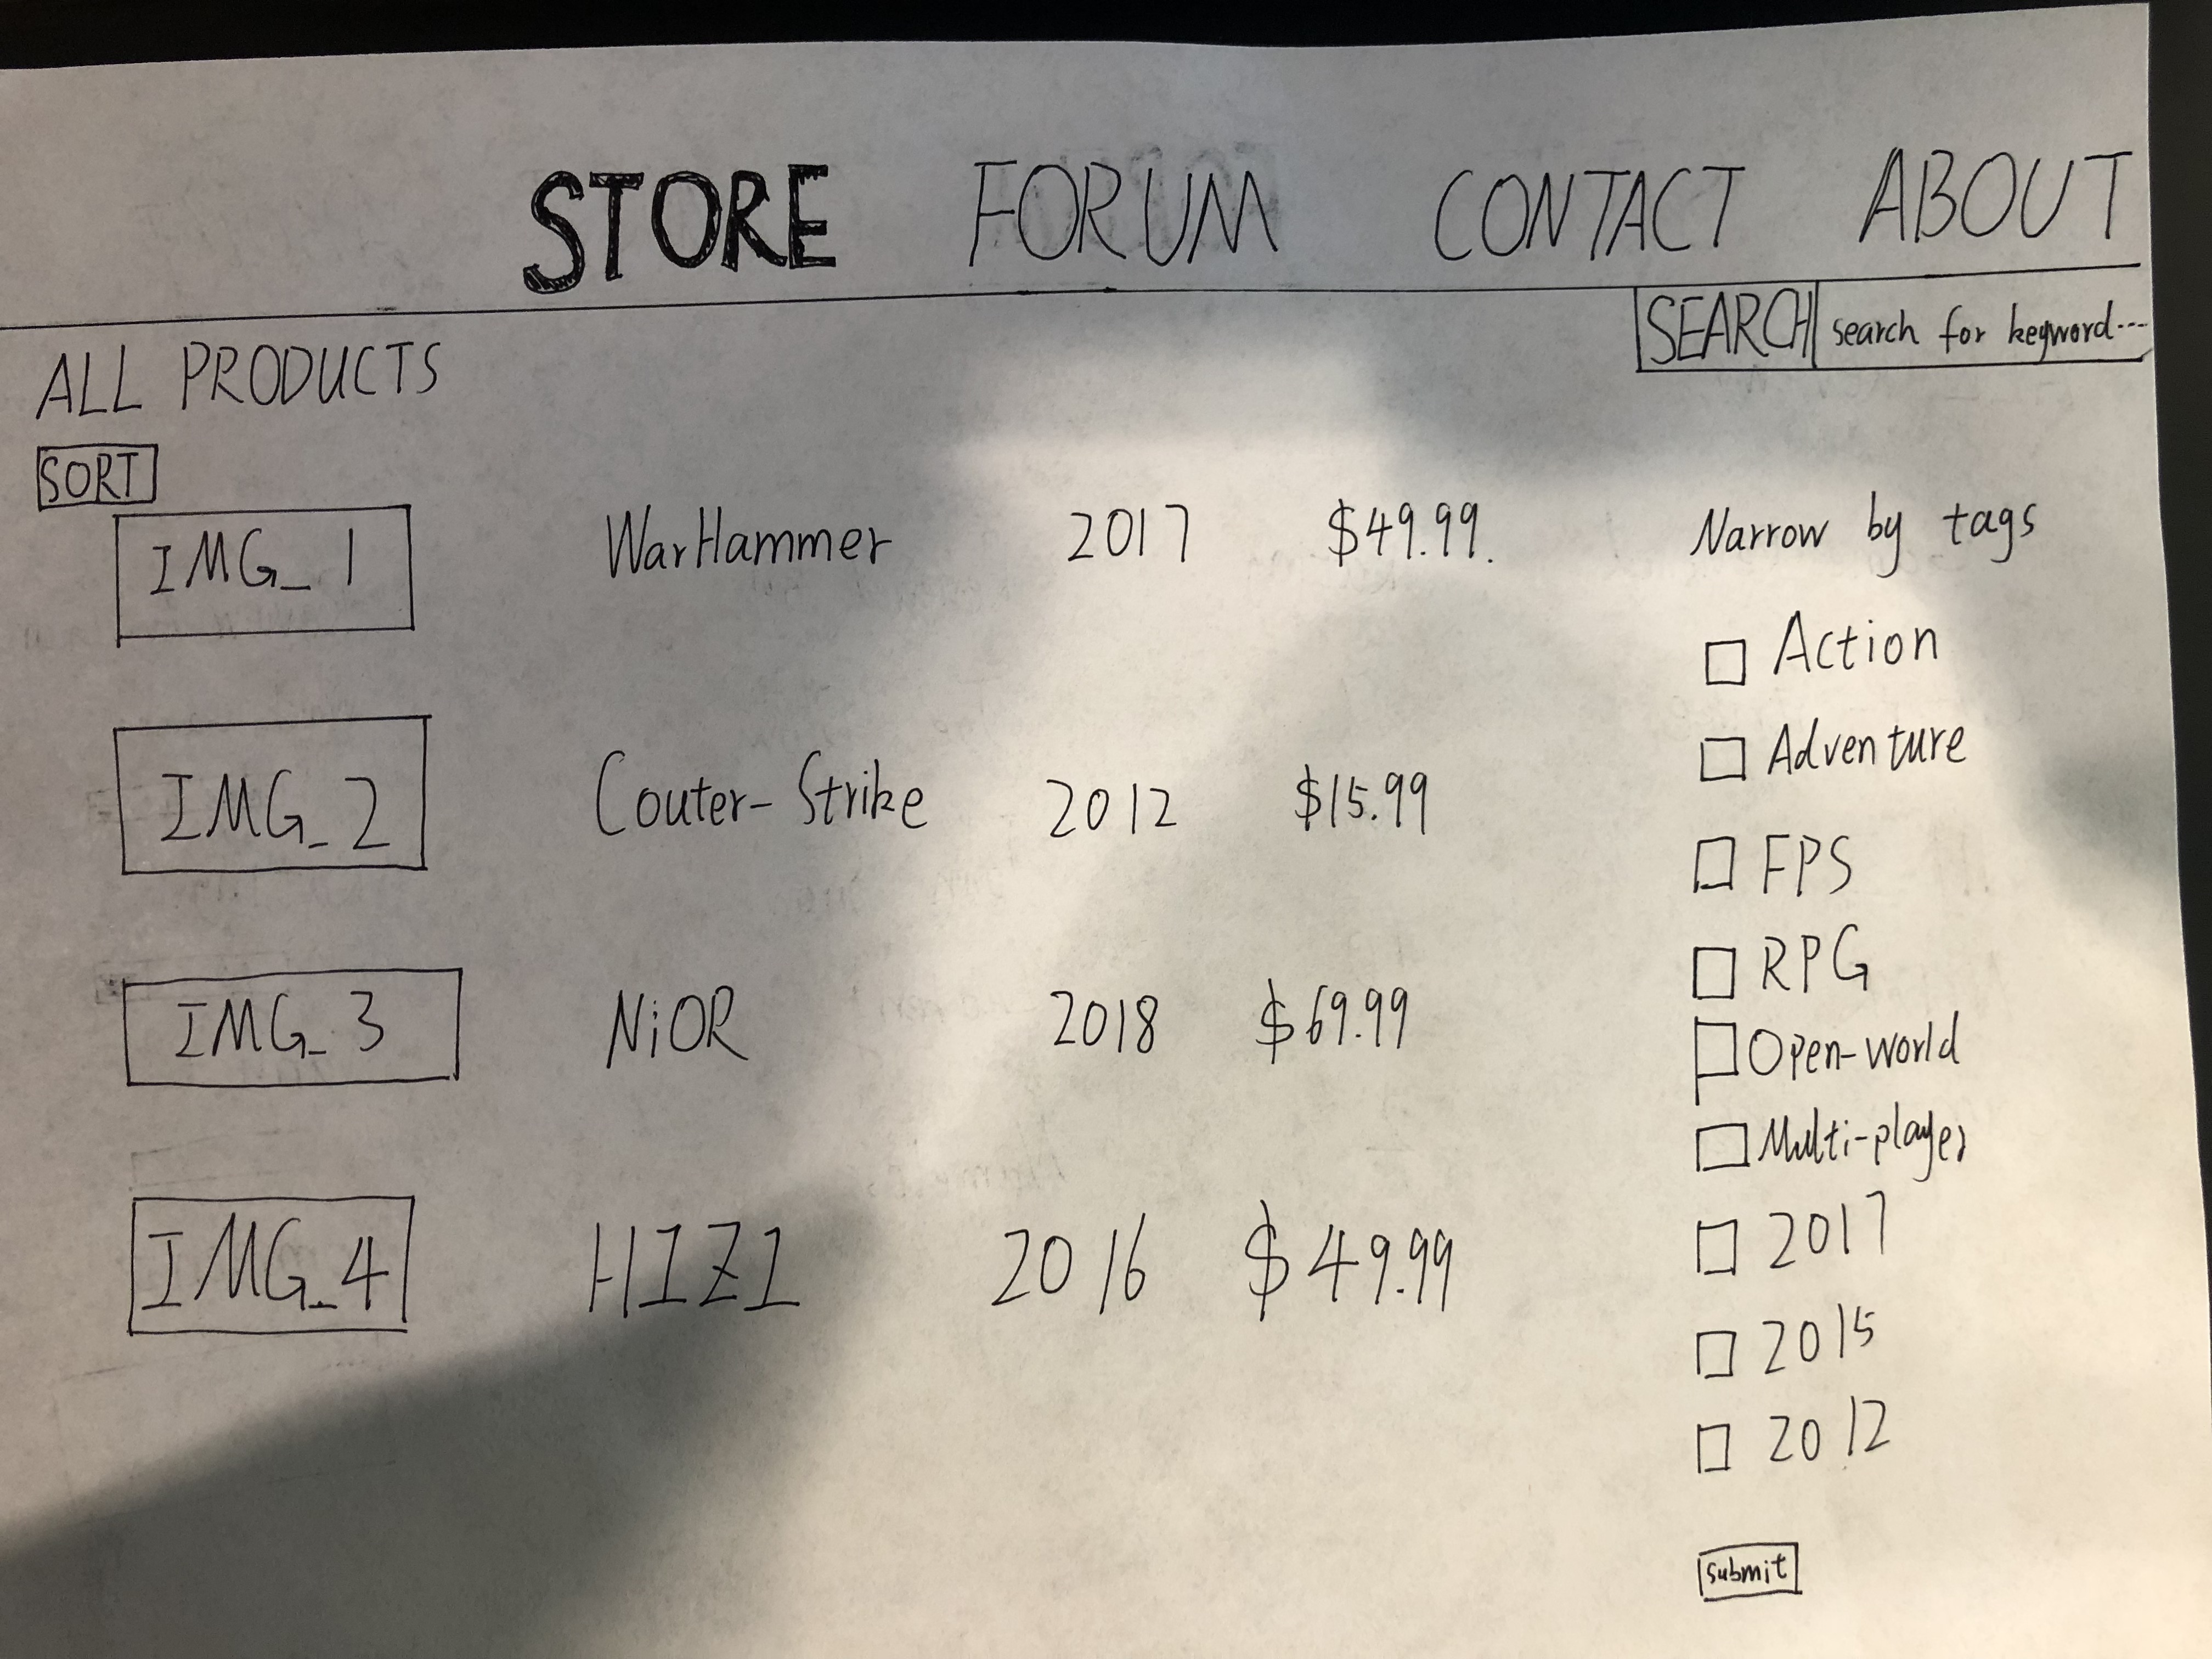 STORE FORUM CONTACT ABOUT
SEARCH search for keyword...
ALL PRODUCTS
SORT
IMG_1 WarHammer 2017 $49.99.
IMG_2 Couter-Strike 2012 $15.99
IMG_3 NiOR 2018 $69.99
IMG_4 H1Z1 2016 $49.99
Narrow by tags
Action
Adventure
FPS
RPG
Open-world
Multi-player
2017
2015
2012
submit